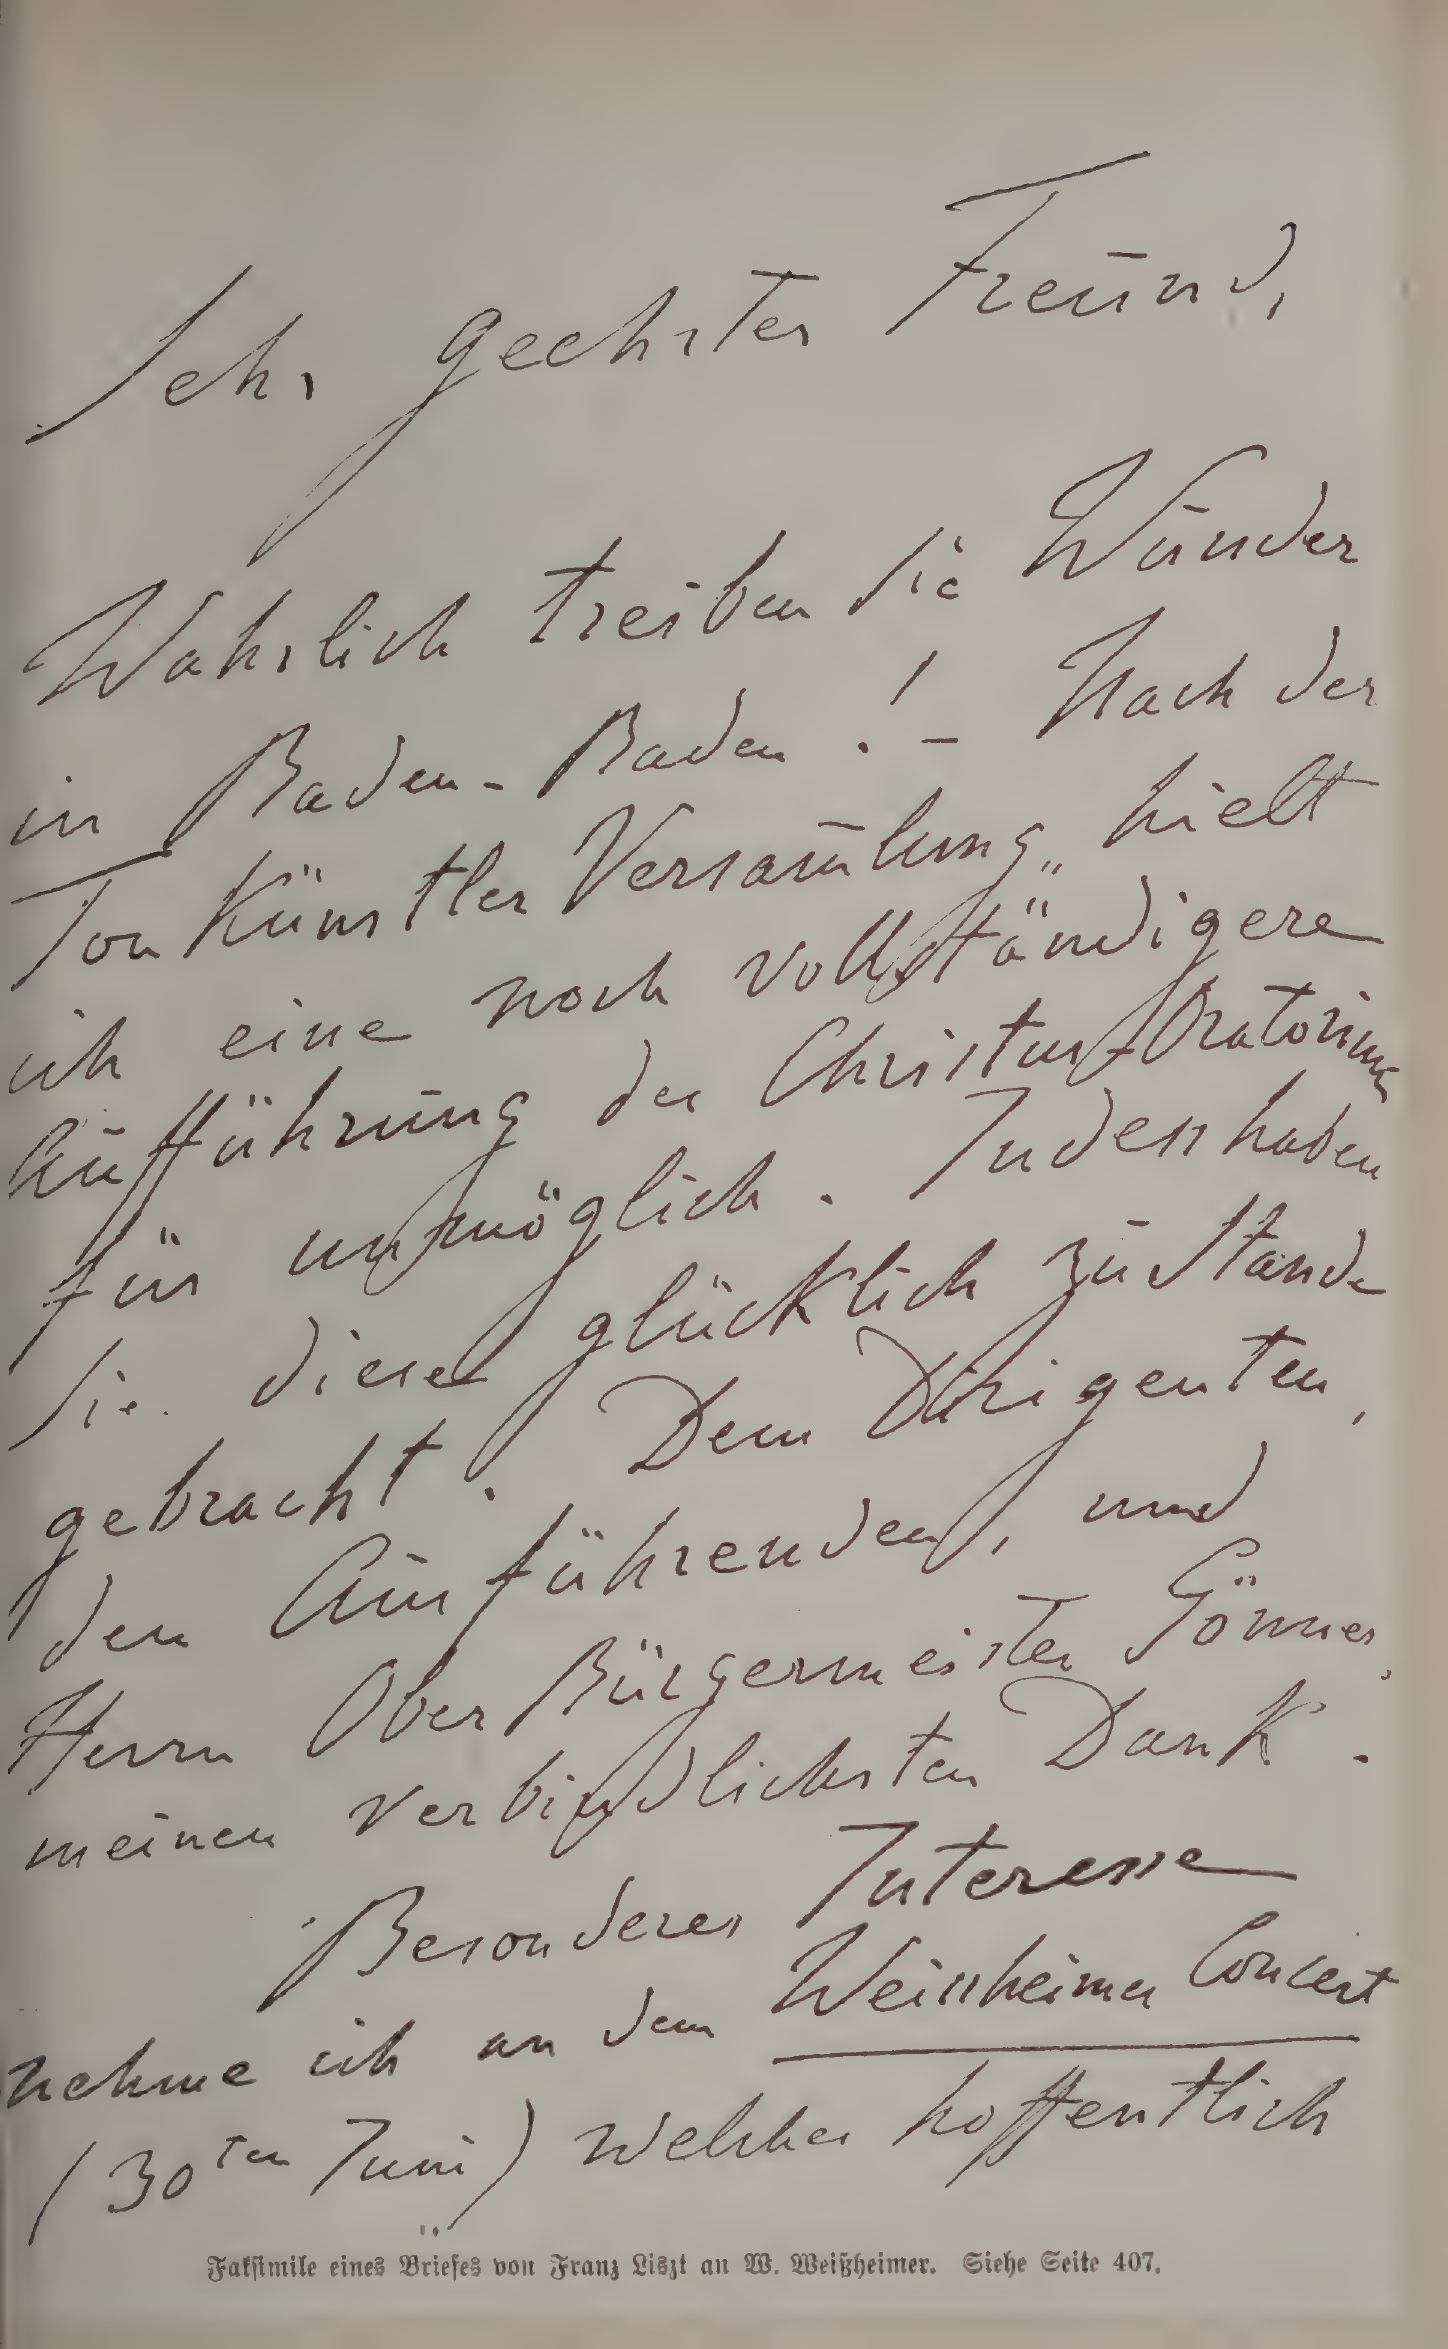 Sehr geehrter Freund,
Wahrlich treiben Sie Wunder
in Baden-Baden! — Nach der
Tonkünstler Versam̄lung„ hielt
ich eine noch vollständigere
Aufführung des Christus-Oratoriums
für unmöglich. Indess haben
Sie dieses glücklich zu Stande
gebracht. Dem Dirigenten,
den Ausführenden, und
Herrn Ober Bürgermeister Gönner,
meinen verbindlichsten Dank.
Besonderes Interesse
nehme ich an dem Weissheimer Concert
(30ten Juni) welches hoffentlich
Faksimile eines Briefes von Franz Liszt an W. Weißheimer. Siehe Seite 407.